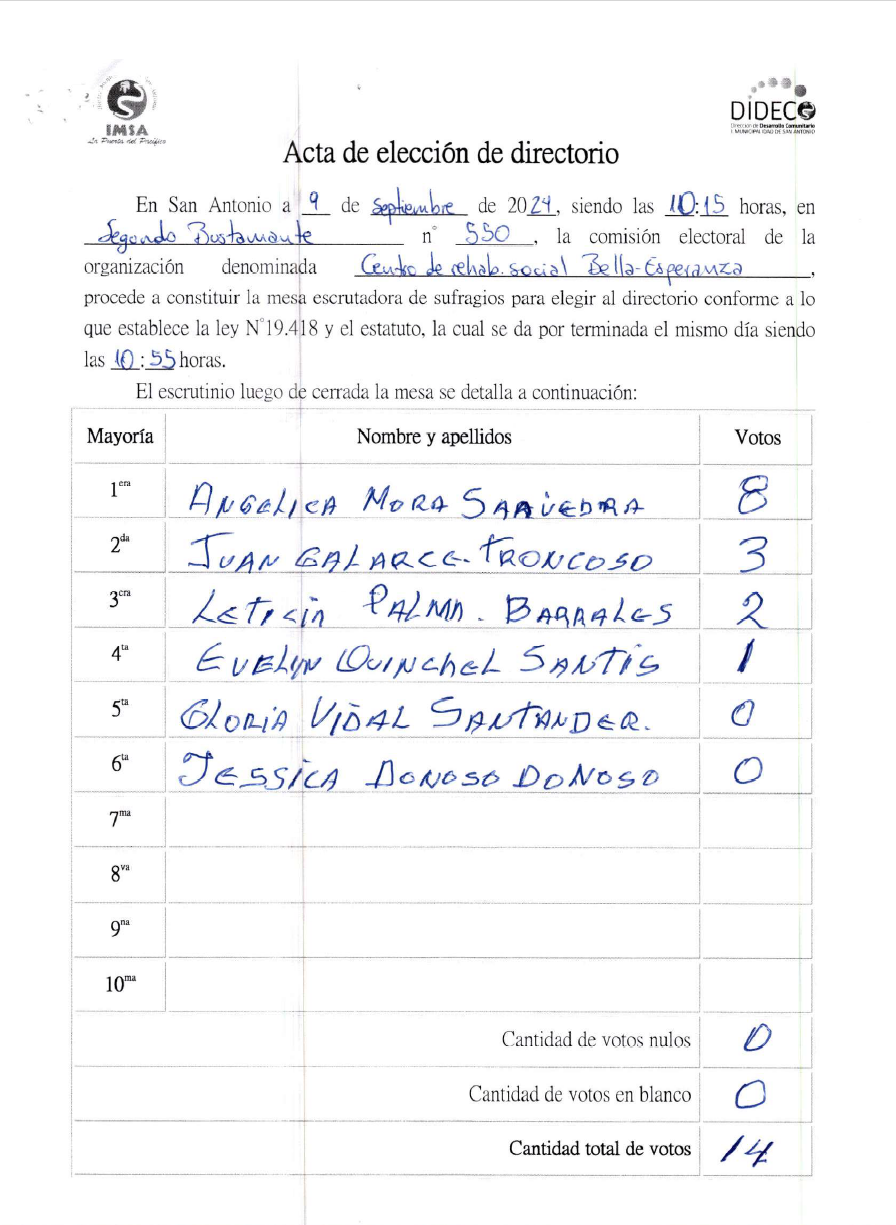 IMSA
La Puerta del Pacífico
DIDECO
Dirección de Desarrollo Comunitario
I. MUNICIPALIDAD DE SAN ANTONIO
Acta de elección de directorio
En San Antonio a 9 de Septiembre de 2024, siendo las 10:15 horas, en
Segundo Bustamante n° 550, la comisión electoral de la
organización denominada Centro de rehab. social Bella-Esperanza,
procede a constituir la mesa escrutadora de sufragios para elegir al directorio conforme a lo
que establece la ley N°19.418 y el estatuto, la cual se da por terminada el mismo día siendo
las 10:55 horas.
El escrutinio luego de cerrada la mesa se detalla a continuación:
Mayoría Nombre y apellidos Votos
1era ANGELICA MORA SAAVEDRA 8
2da JUAN GALARCE TRONCOSO 3
3era LETICIA PALMA. BARRALES 2
4ta EVELYN QUINCHEL SANTIS 1
5ta GLORIA VIDAL SANTANDER. 0
6ta JESSICA DONOSO DONOSO 0
7ma
8va
9na
10ma
Cantidad de votos nulos 0
Cantidad de votos en blanco 0
Cantidad total de votos 14